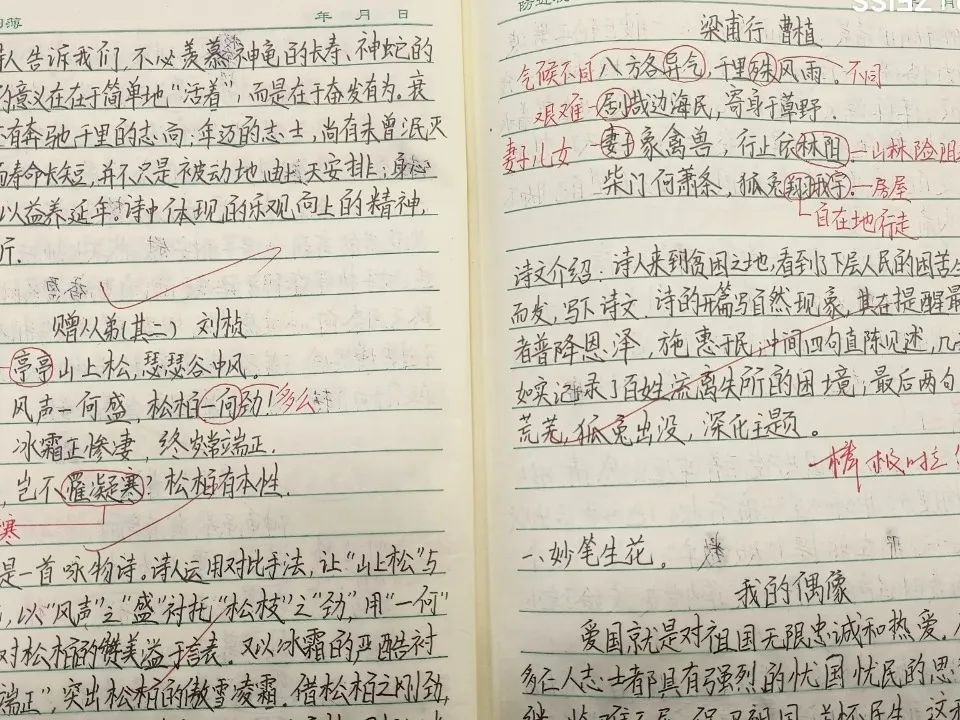 年 月 日
人告诉我们,不必羡慕神龟的长寿、神蛇的
意义在在于简单地“活着”,而是在于奋发有为。衰
有奔驰千里的志向;年迈的志士,尚有未曾泯灭
寿命长短,并不只是被动地由上天安排;身心
以益养延年。诗中体现的乐观向上的精神,
赠从弟(其二) 刘桢
亭亭山上松,瑟瑟谷中风。
风声一何盛,松柏一何劲!多么
冰霜正惨凄,终岁常端正。
岂不罹凝寒?松柏有本性。
寒
是一首咏物诗。诗人运用对比手法,让“山上松”与
,以“风声”之“盛”衬托“松枝”之“劲”,用“一何”
对松柏的赞美溢于言表。又以冰霜的严酷衬
端正”,突出松柏的傲雪凌霜。借松柏之刚劲,
梁甫行 曹植
气候不同 八方各异气,千里殊风雨。不同
艰难 剧哉边海民,寄身于草野。
妻子儿女 妻子象禽兽,行止依林阻。山林险阻
柴门何萧条,狐兔翔我宇。房屋
自在地行走
诗文介绍:诗人来到贫困之地,看到了下层人民的困苦生
而发,写下诗文。诗的开篇写自然现象,其在提醒最
者普降恩泽,施惠于民;中间四句直陈见述,几
如实记录了百姓流离失所的困境;最后两句
荒芜,狐兔出没,深化主题。
一、妙笔生花。
我的偶像
爱国就是对祖国无限忠诚和热爱。
多仁人志士都具有强烈的忧国忧民的思